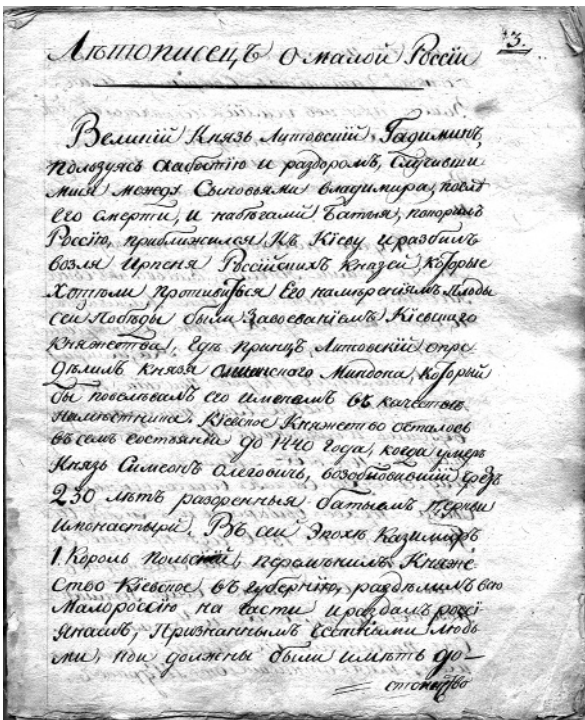 3.
Лѣтописецъ о малой Россіи
Великій Князь Литовскій, Гадиминъ,
пользуясь слабостію и раздоромъ, Случивши
мися между Сыновьями владимира, послѣ
его смерти, и набѣгами Батыя, покорилъ
Россію, приближился Къ Кіеву и разбилъ
возля Ирпеня Россійскихъ Князей, которые
Хотѣли противиться Его намѣреніямъ Плоды
сеи Побѣды были Завоеваніемъ Кіевскаго
Княжества, гдѣ принцъ Литовскій опре
дѣлилъ Князя Миндона, который
бы повелѣвалъ его именемъ въ качествѣ
намѣстника. Кіевское Княжество осталось
въ семъ состояніи до 1440 года, когда умеръ
Князь Симеонъ олеговичь, возобновившій чрезъ
230 лѣтъ разоренныя батыемъ церкви
и монастыри. Въ сеи Эпохѣ Казимиръ
1. Король польскій, перемѣнилъ Княже
ство Кіевское въ губернію, раздѣлилъ всю
Малороссію на части и раздалъ россі
янамъ, Признаннымъ людь
ми, кои должны были имѣть до–
стоинство